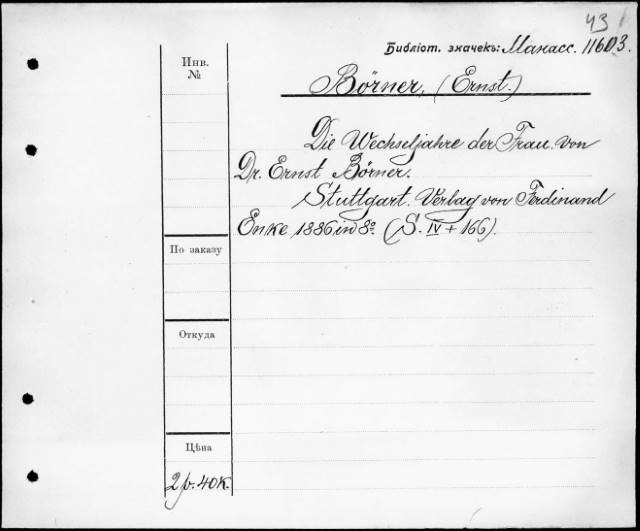 43
Библіот. значекъ: Манасс. 11603.
Инв.
№
Börner, (Ernst.)
Die Wechseljahre der Frau. von
Dr. Ernst Börner.
Stuttgart. Verlag von Ferdinand
Enke 1886 in 8º (S. IV + 166).
По заказу
Откуда
Цѣна
2 р. 40 к.